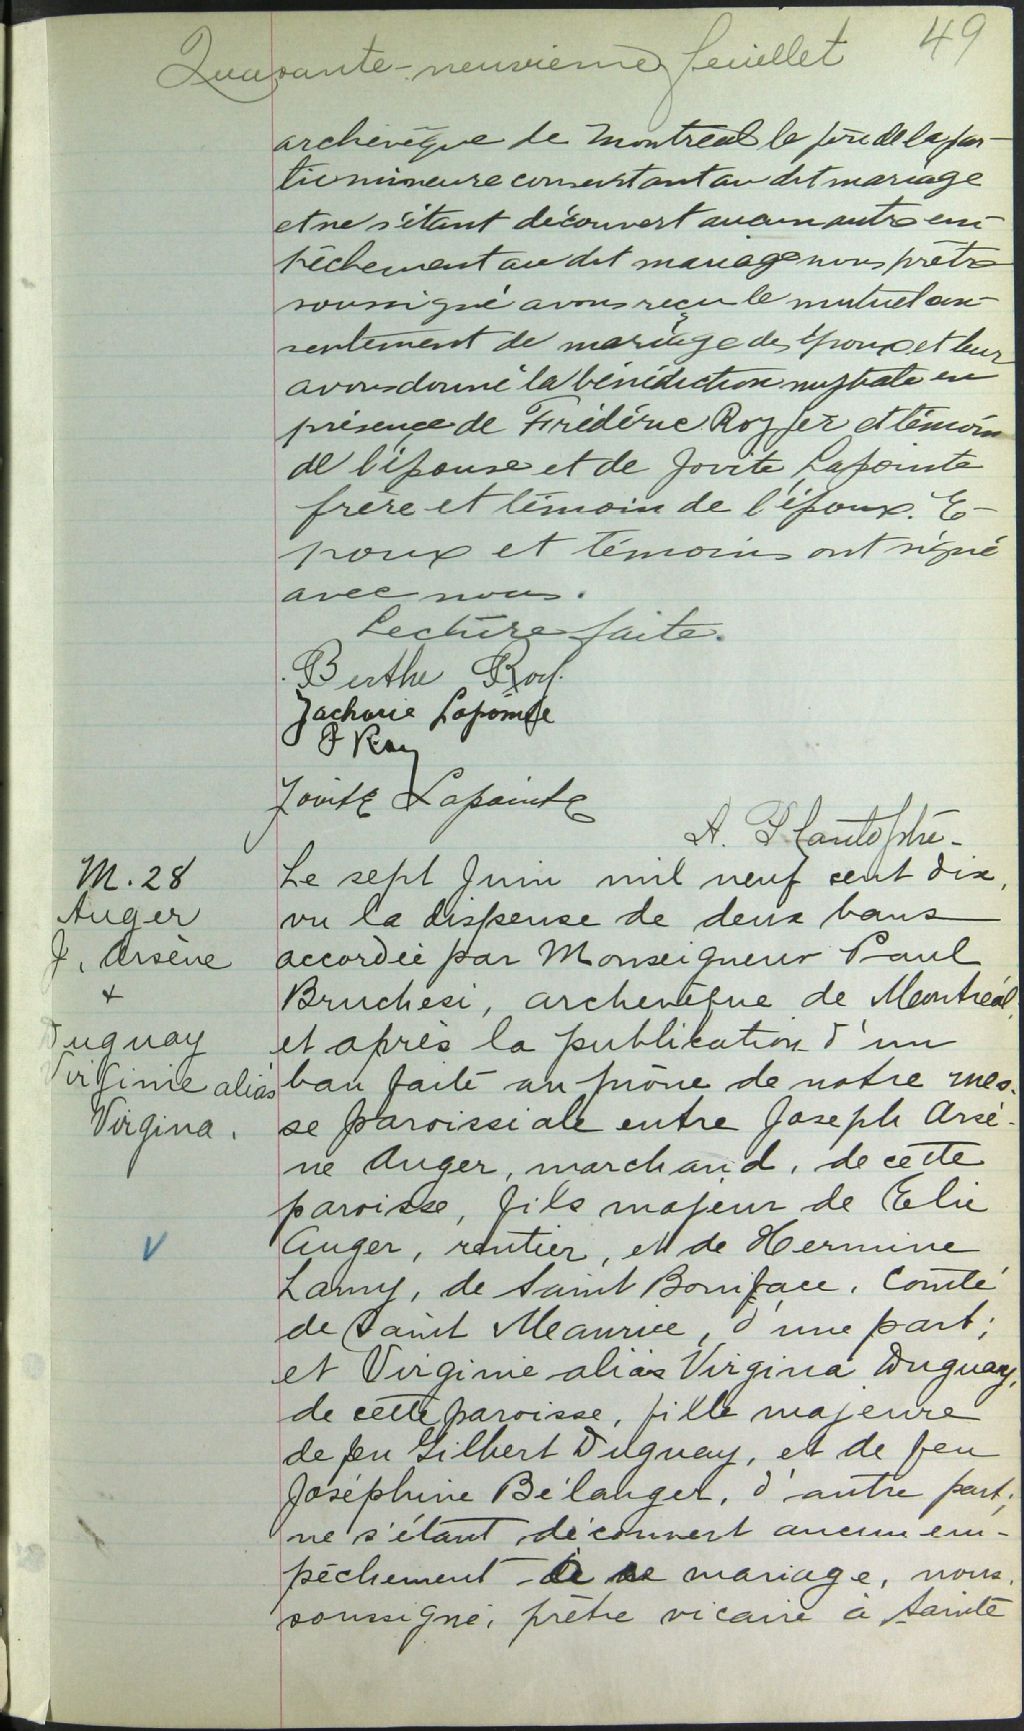 49
Quarante-neuvième feuillet
archevêque de Montréal le père de la par-
tie mineure consentant au dit mariage
et ne s'étant découvert aucun autre em-
pêchement au dit mariage nous prêtre
soussigné avons reçu le mutuel con-
sentement de mariage des époux et leur
avons donné la bénédiction nuptiale en
présence de Frédéric Roy père et témoin
de l'épouse et de Jovite Lapointe
frère et témoin de l'époux. E-
poux et témoins ont signé
avec nous.
Lecture faite.
Berthe Roy.
Zacharie Lapointe
F Roy
Jovite Lapointe
A.
M. 28
Auger
J. Arsène
+
Duguay
Virginie alias
Virgina.
Le sept Juin mil neuf cent dix,
vu la dispense de deux bans
accordée par Monseigneur Paul
Bruchesi, archevêque de Montréal,
et après la publication d'un
ban faite au prône de notre mes-
se paroissiale entre Joseph Arsè-
ne Auger, marchand, de cette
paroisse, fils majeur de Elie
Auger, rentier, et de Hermine
Lamy, de Saint Boniface, Comté
de Saint Maurice, d'une part;
et Virginie alias Virgina Duguay,
de cette paroisse, fille majeure
de feu Gilbert Duguay, et de feu
Joséphine Bélanger, d'autre part;
ne s'étant découvert aucun em-
pêchement à ce mariage, nous,
soussigné, prêtre vicaire à Sainte